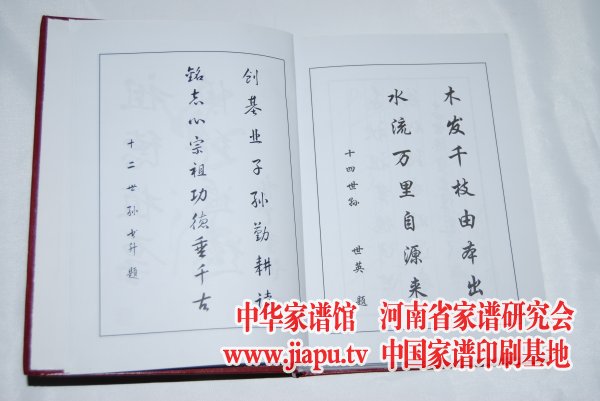 木发千枝由本出
水流万里自源来
十四世孙 世英 题
创基业子孙勤耕读
銘志心宗祖功德垂千古
十二世孙 升 题
中华家谱馆 河南省家谱研究会
www.jiapu.tv 中国家谱印刷基地